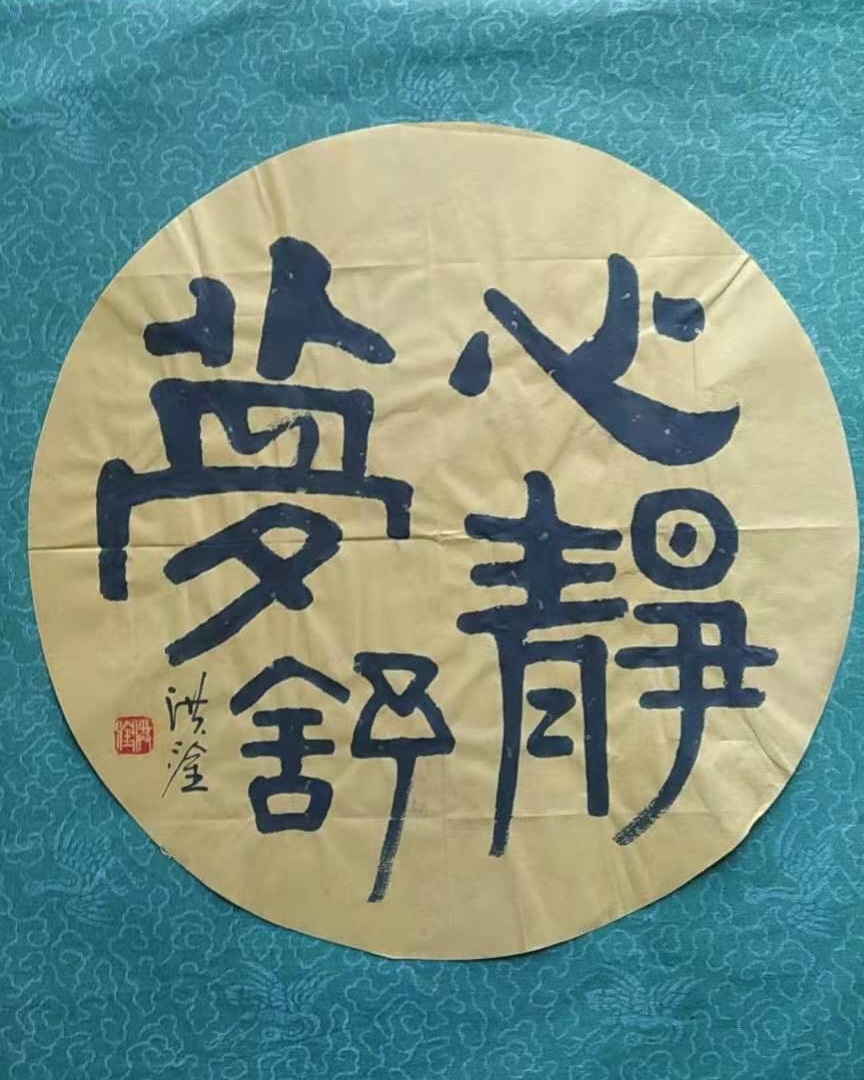 心靜
夢舒
洪淦